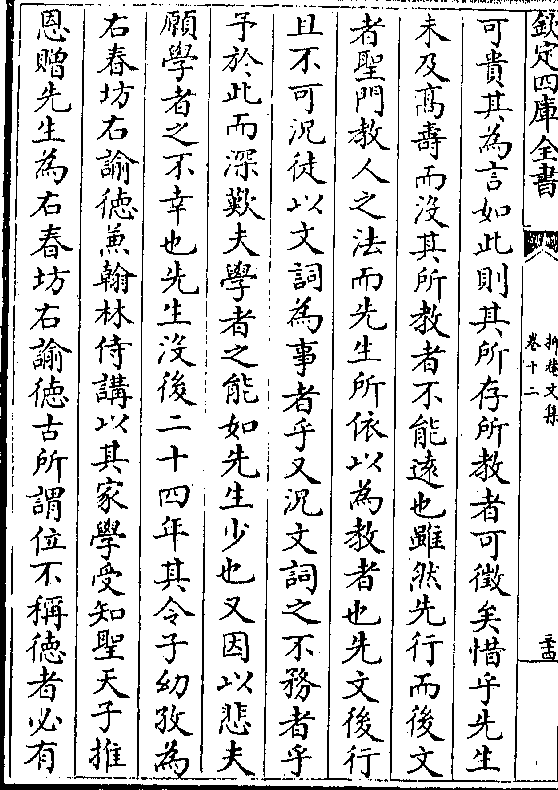 欽定四庫全書
折菴文集
卷十二
可貴其為言如此則其所存所教者可徵矣惜乎先生
未及髙壽而没其所教者不能逺也雖然先行而後文
者聖門教人之法而先生所依以為教者也先文後行
且不可況徒以文詞為事者乎又況文詞之不務者乎
予於此而深歎夫學者之能如先生少也又因以悲夫
願學者之不幸也先生没後二十四年其令子幼孜為
右春坊右諭徳兼翰林侍講以其家學受知聖天子推
恩贈先生為右春坊右諭徳古所謂位不稱徳者必有